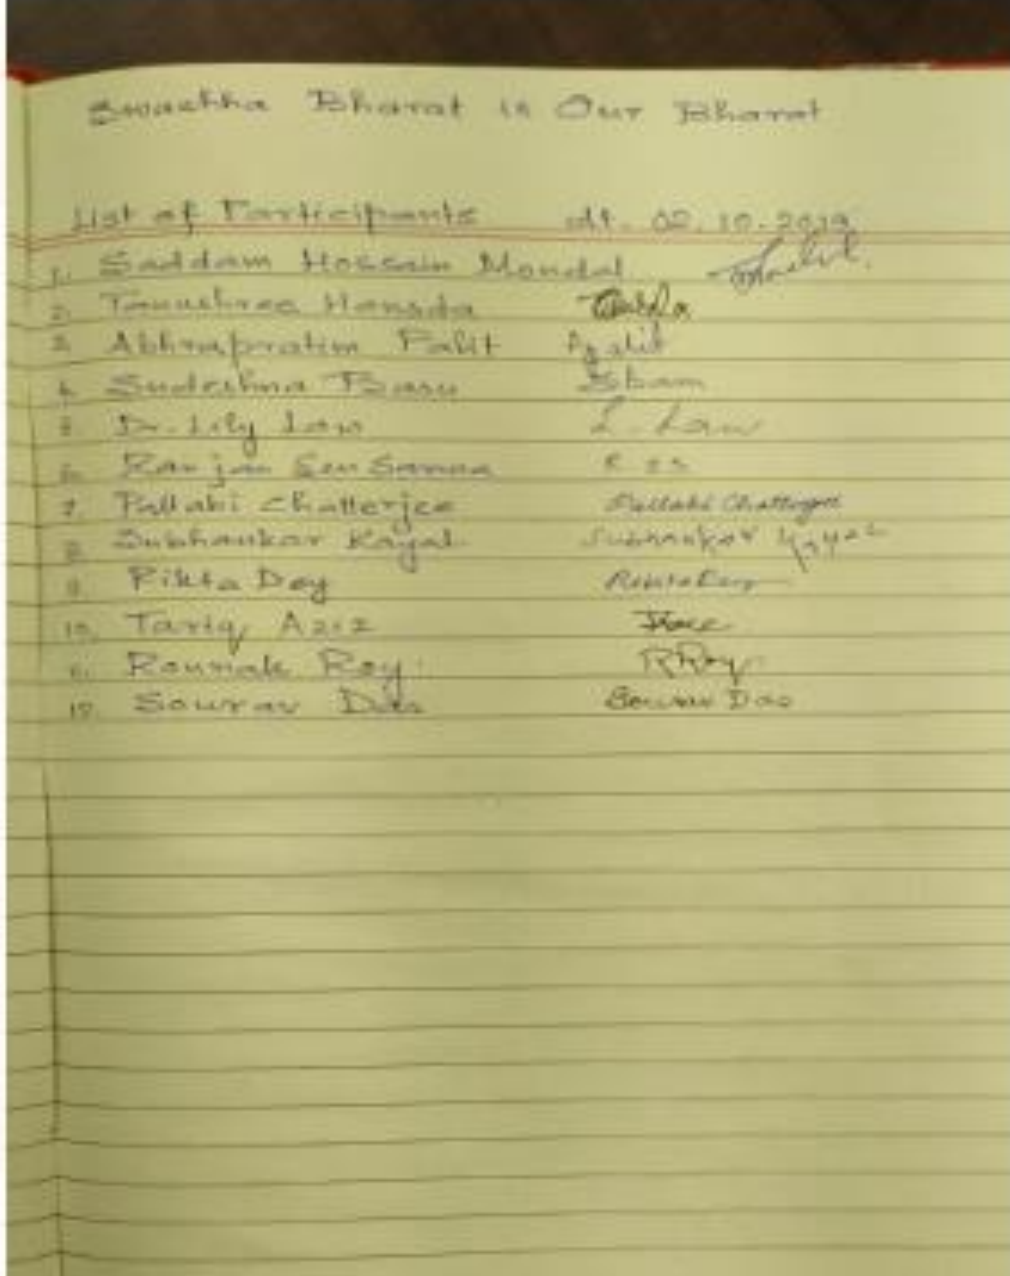 Swachha Bharat is Our Bharat
List of Participants dt. 02.10.2019
1. Saddam Hossain Mondal
2. Tanushree Hansda
3. Abhrapratim Palit
4. Sudeshna Basu
5. Dr. Lily Law L. Law
6. Ranjan Sen
7. Pallabi Chatterjee Pallabi Chatterjee
8. Subhankar Kayal Subhankar Kayal
9. Rikta Dey Rikta Dey
10. Tariq Aziz
11. Rounak Roy RRoy
12. Sourav Das Sourav Das